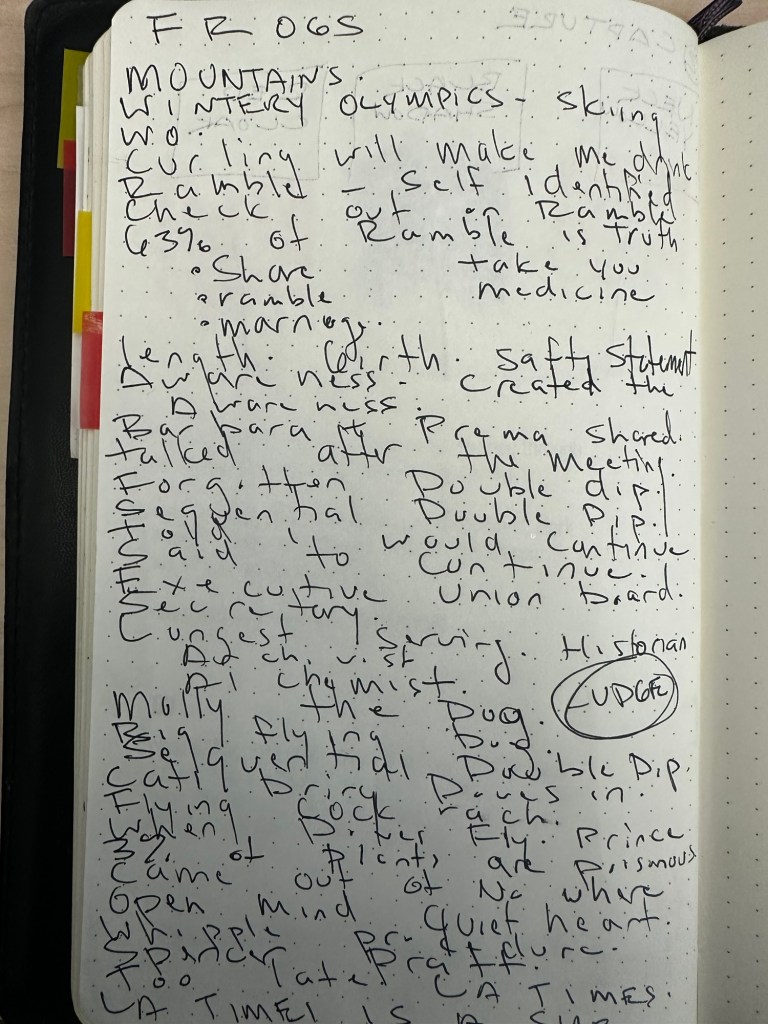 FROGS
MOUNTAINS.
WINTERY OLYMPICS - Skiing
WO.
Curling will make me drink
Ramble - self identified
Check out on Ramble
63% of Ramble is truth
• Share take you
• ramble medicine
• marriage.
Length. Girth. Safty Statement
Awareness. Created the
Awareness.
Barbara Prema shared.
talked after the meeting.
Forgotten Double dip!
Sequential Double Dip!
would continue
Said to continue.
Executive Union board.
Secretary.
Longest serving. Historian
Archivist
Alchemist. LUDGE
Molly the Dog.
Big Flying Dog.
Sequential Double Dip.
Doves in.
Flying Cock roach.
When Fly. Prince
3% of plants are Poismous
Came out of No where
Open Mind Quiet heart.
Whipple
Spencer Pratt.
Too late! LA TIMES.
LA TIMES IS A